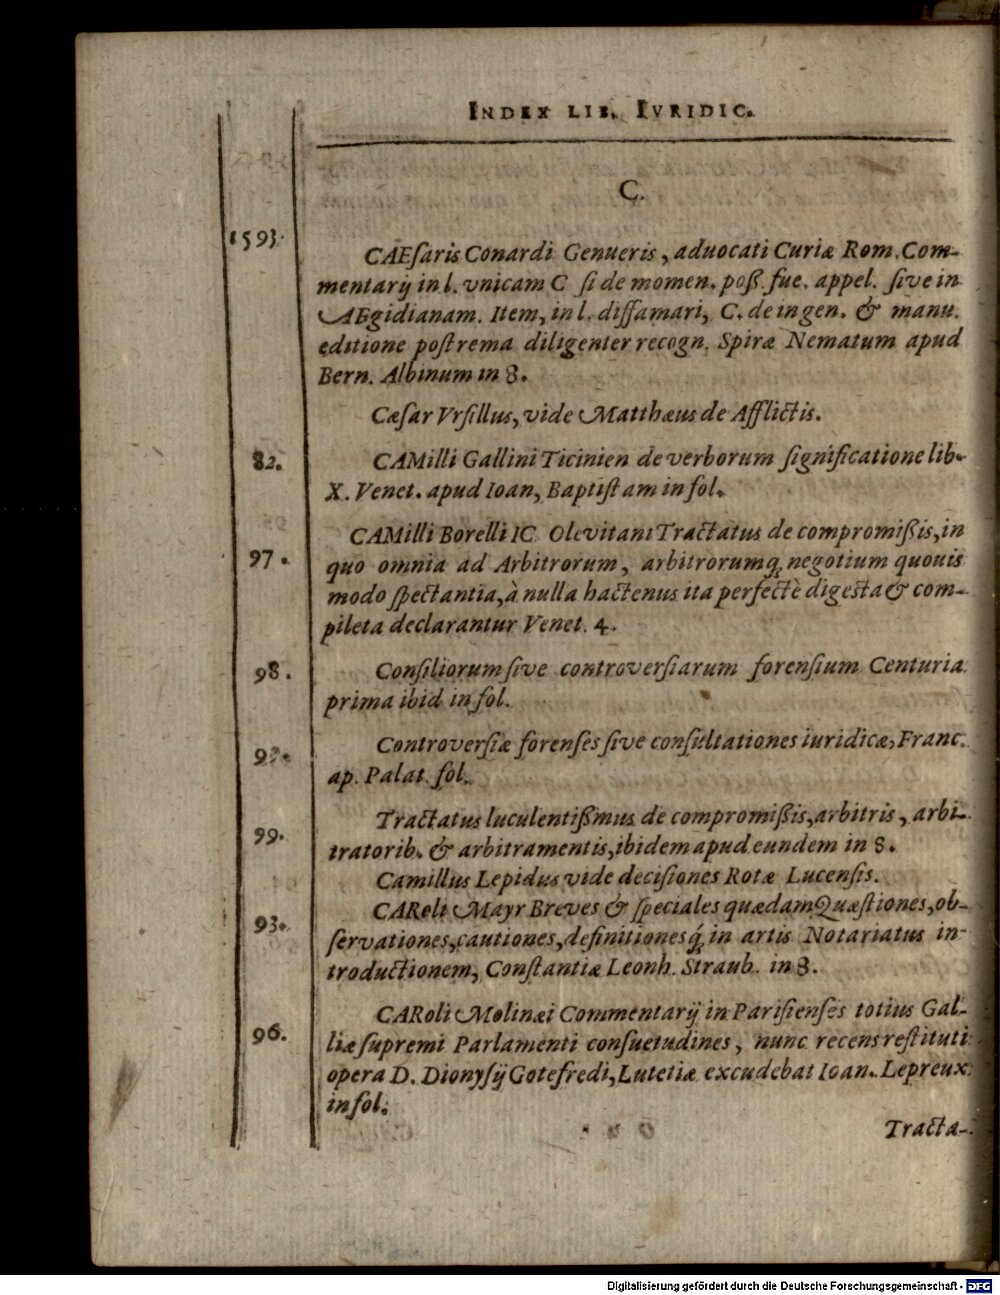 INDEX LIB. IVRIDIC.
C.
1593.
CAEſaris Conardi Genueris, aduocati Curiæ Rom. Com-
mentarij in l. vnicam C ſi de momen. poſß. fue. appel. ſive in
AEgidianam. Item, in l. diffamari, C. de ingen. & manu.
editione poſtrema diligenter recogn. Spiræ Nematum apud
Bern. Albinum in 8.
Cæſar Vrſillus, vide Matthæus de Afflictis.
82. CAMilli Gallini Ticinien de verborum ſignificatione lib.
X. Venet. apud Ioan, Baptiſtam in fol.
CAMilli Borelli IC Olevitani Tractatus de compromiſßis, in
97. quo omnia ad Arbitrorum, arbitrorumq́ negotium quouis
modo ſpectantia, à nulla hactenus ita perfectè digesta & com-
pileta declarantur Venet. 4.
98. Conſiliorum ſive controverſiarum forenſium Centuria
prima ibid in fol.
Controverſiæ forenſes ſive conſultationes iuridicæ, Franc.
ap. Palat. fol.
Tractatus luculentiſßimus de compromiſßis, arbitris, arbi-
99. tratorib. & arbitramentis, ibidem apud eundem in 8.
Camillus Lepidus vide deciſiones Rotæ Lucenſis.
CARoli Mayr Breves & ſpeciales quædam Quæſtiones, ob-
93. ſervationes, cautiones, definitionesq́ in artis Notariatus in-
troductionem, Conſtantiæ Leonh. Straub. in 8.
CARoli Molinæi Commentarij in Pariſienſes totius Gal-
96. liæ ſupremi Parlamenti conſuetudines, nunc recens reſtituti
opera D. Dionyſij Gotefredi, Lutetiæ excudebat Ioan. Lepreux
in fol.
Tracta-
Digitalisierung gefördert durch die Deutsche Forschungsgemeinschaft - DFG